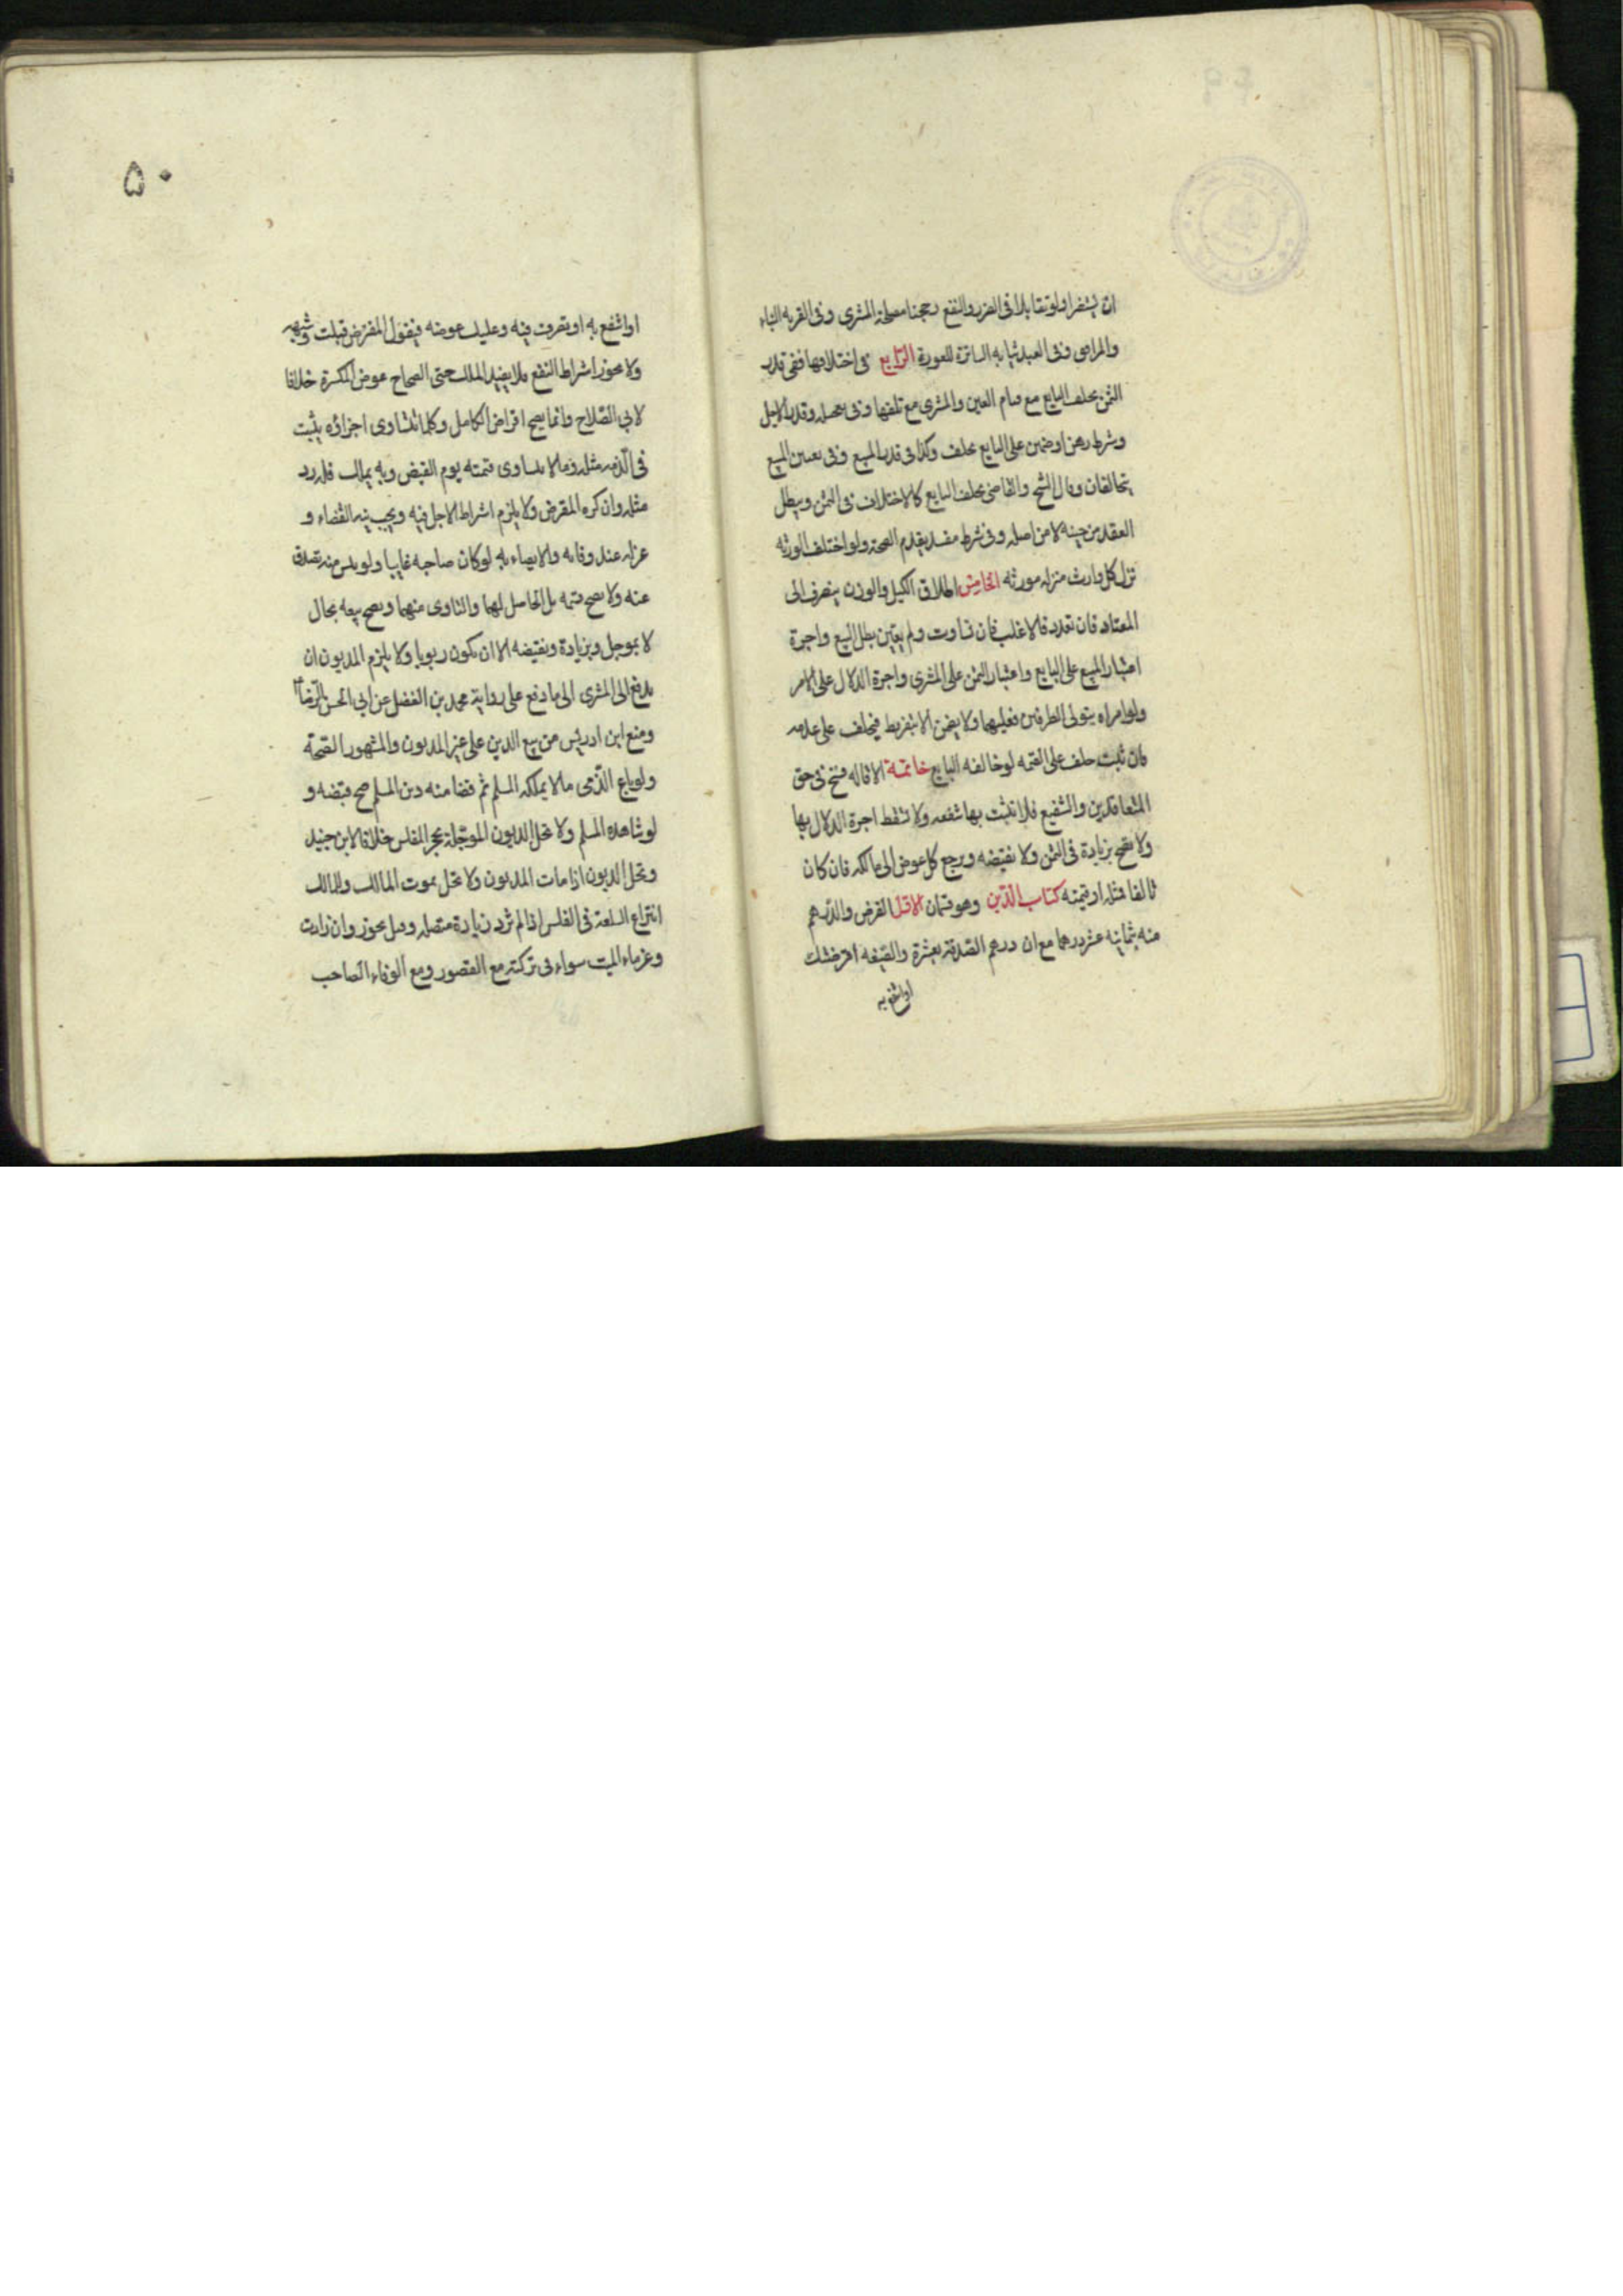 ان يستضرا ولو تقابلا فى الضرر والنفع رجحنا مصلحة المشترى وفى القريه البناء
والمرافق وفى العبد ثيابه الساترة للعورة الرابع فى اختلافهما ففى قدر
الثمن يحلف البايع مع قيام العين والمشترى مع تلفها وفى تعجيله وقدر الاجل
وشرط رهن او ضمين على البايع يحلف وكذا فى قدر المبيع وفى تعيين المبيع
يتحالفان وقال الشيخ والقاضى يحلف البايع كالاختلاف فى الثمن ويبطل
العقد من حينه لا من اصله وفى شرط مفسد يقدم الصحة ولو اختلف الورثه
نزل كل وارث منزله مورثه الخامس اطلاق الكيل والوزن ينصرف الى
المعتاد فان تعدد فالاغلب فان تساوت ولم يعين بطل البيع واجرة
اعتبار المبيع على البايع واعتبار الثمن على المشترى واجرة الدلال على الامر
ولو امراه يتولى الطرفين فعليهما ولا يضمن الا بتفريط فيحلف على عدمه
فان ثبت حلف على القيمه لو خالفه البايع خاتمة الاقاله فسخ فى حق
المتعاقدين والشفيع فلا تثبت بها شفعه ولا تسقط اجرة الدلال بها
ولا تصح بزيادة فى الثمن ولا نقيضه ويرجع كل عوض الى مالكه فان كان
تالفا فمثله او قيمته كتاب الدين وهو قسمان الاول القرض والدرهم
منه بثمانيه عشر درهما مع ان درهم الصدقة بعشرة والصيغه اقرضتك
او انتفع به
۵۰
او انتفع به او تصرف فيه وعليك عوضه فيقول المقترض قبلت وشبهه
ولا يجوز اشتراط النفع فلا يفيد الملك حتى الصحاح عوض المكسرة خلافا
لابى الصلاح وانما يصح اقراض الكامل وكلما تتساوى اجزاؤه يثبت
فى الذمه مثله وما لا يتساوى قيمته يوم القبض وبه يملك فله رد
مثله وان كره المقرض ولا يلزم اشتراط الاجل فيه ويجب نيه القضاء و
عزله عند وفاته والايصاء به لو كان صاحبه غايبا ولو يئس منه تصدق
عنه ولا يصح قسمه بل الحاصل لهما والتاوى منهما ويصح بيعه بحال
لا بموجل وبزيادة ونقيضه الا ان يكون ربويا ولا يلزم المديون ان
يدفع الى المشترى الى ما دفع على رواية محمد بن الفضل عن ابى الحسن الرضا ع
ومنع ابن ادريس من بيع الدين على غير المديون والمشهور الصحة
ولو باع الذمى ما لا يملكه المسلم ثم قضا منه دين المسلم صح قبضه و
لو شاهده المسلم ولا تحل الديون الموجلة بحجر المفلس خلافا لابن جنيد
وتحل الديون اذا مات المديون ولا تحل بموت المالك وللمالك
انتزاع السلعة فى الفلس اذا لم تزد زيادة متصله وقيل يجوز وان زادت
وغرماء الميت سواء فى تركته مع القصور ومع الوفاء لصاحب